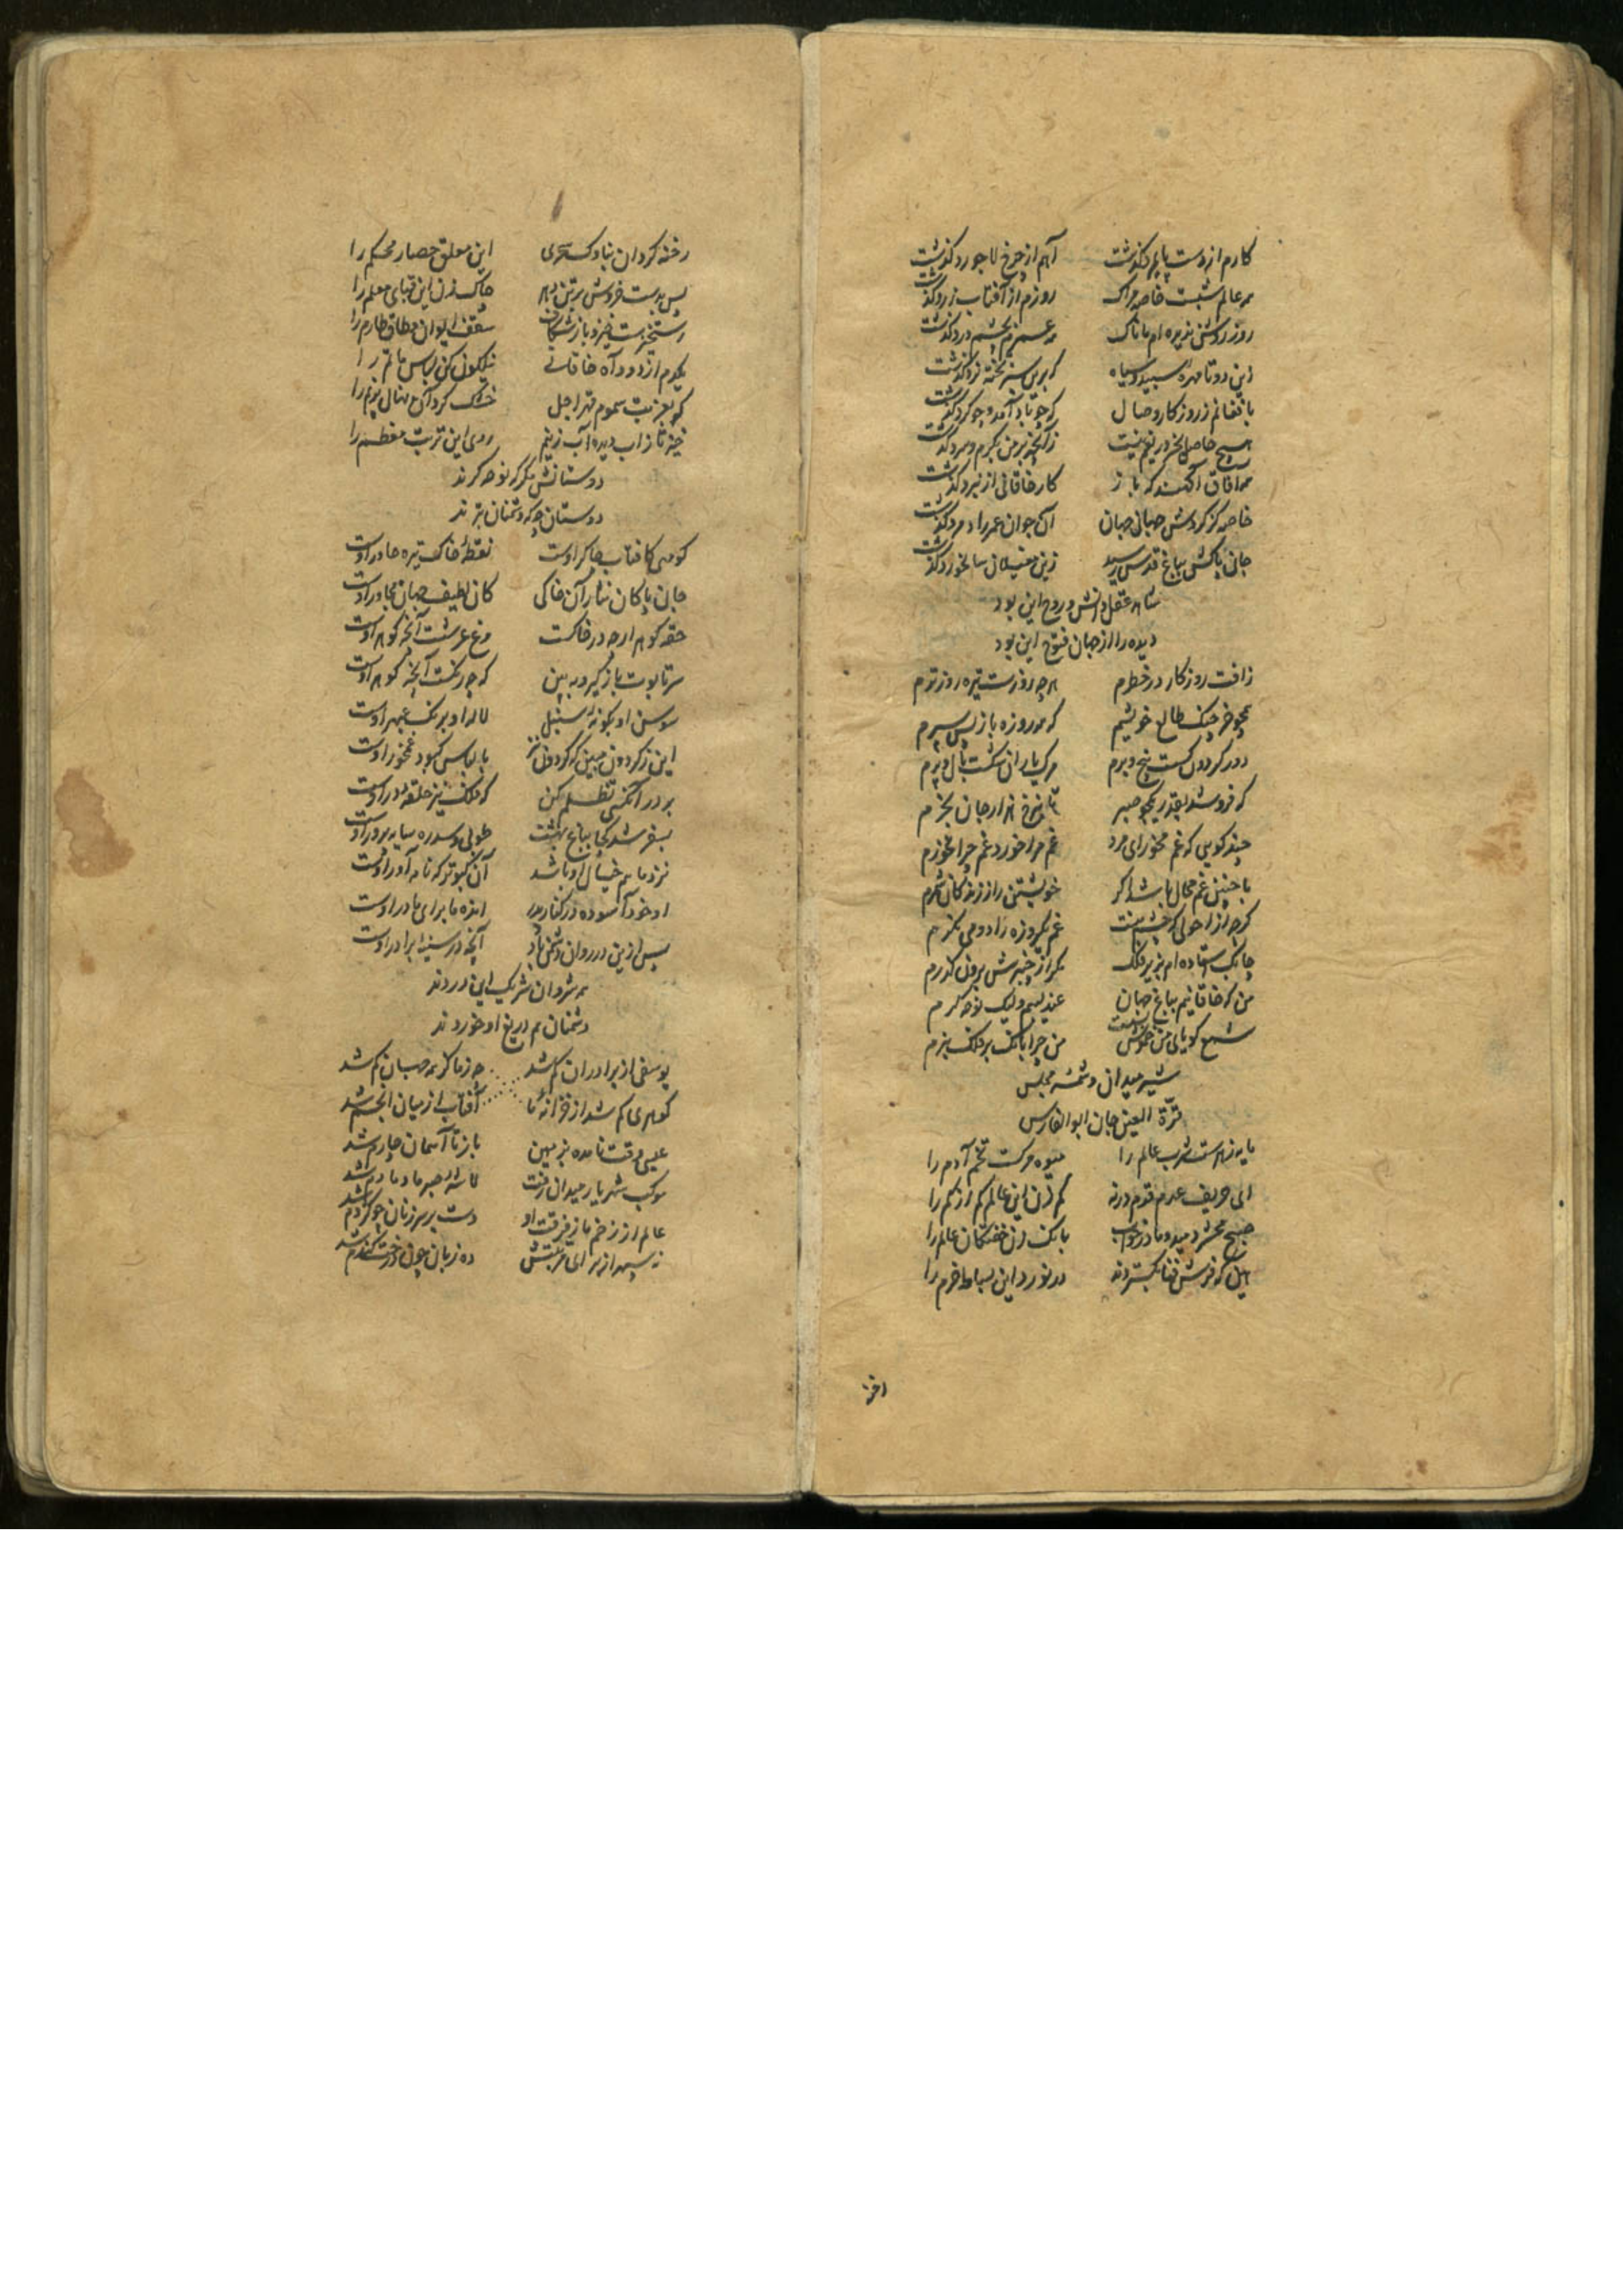 کارم از دست پایمرد گذشت آهم از چرخ لاجورد گذشت
همه عالم شبست خاصه مراک روزم از آفتاب زرد گذشت
روز روشن ندیده ام ماناک همه عمرم بچشم درد گذشت
زین دو تا مهرهٔ سپید و سیاه که برین سبز تخته نرد گذشت
با فغانم ز روزکار وصال که چو باد آمد و چو گرد گذشت
هیچ حاصل بجز دریغم نیست زانچه بر من ز گرم و سرد گذشت
همه آفاق آگهند که باز کار خاقانی از نبرد گذشت
خاصه کز گردش جهان جهان آن جوان عمر راد مرد گذشت
جان پاکش بباغ قدس رسید زین مغیلان سالخورد گذشت
شاه عقل و دانش و روح این بود
دیده را از جهان فتوح این بود
زافت روزکار در خطرم هرچه روزست تیره روز ترم
همچو خرچنک طالع خویشم که همه روزه باز پس سپرم
دور گردون گسست بیخ و برم مرگ یاران شکست بال و پرم
که فروشد بقدر یکجو صبر تا بنرخ هزار جان بخرم
چند گویی که غم مخور ای مرد غم مرا خورد غم چرا نخورم
با چنین غم محال باشد اکر خویشتن را ز زندکان شمرم
کرچه از احولی که چشم منست غم یکروزه را دو می نکرم
چابک استاده ام بزیر فلک مکر از چنبرش برون گذرم
من که خاقانیم بباغ جهان عندلیبم ولیک نوحه گرم
شمع کویای من خموش نشست من چرا بانک بر فلک نبرم
شیر میدان و شمسهٔ مجلس
قرة العین جان ابوالفارس
مایه زهرست شرب عالم را میوه مرکست تخم آدم را
ای حریف عدم قدم در نه کم زن این عالم کم از کم را
صبح محشر دمید و ما در خواب بانک زن خفتکان عالم را
هین که فرش فنا بکستردند در نورد این بساط خرم را
رخنه کردان بناوک سحری این معلق حصار محکم را
پس بدست خروش بر تن دهر چاک زن این قبای معلم را
رستخیزست خیز و باز شکاف سقف ایوان و طاق طارم را
یکدم از دود آه خاقانی نیلکون کن لباس ماتم را
کو بعزیت سموم قهر اجل خشک کرد آن نهال پرنم را
خیز تا زاب دیده آب زنیم روی این تربت معظم را
دوستانش نگر که نوحه گرند
دوستان چه که دشمنان بترند
کو مهی کافتاب چاکر اوست نقطهٔ خاک تیره چادر اوست
جان پاکان نثار آن خاکی کان لطیف جهان مجاور اوست
حقه کوهر ارچه در خاکست مرغ عرشست آنچه کوهر اوست
سر تابوت باز گیر و ببین که چه رنگست آنچه کوهر اوست
سوسن او بکونهٔ سنبل لالهٔ او برنک عبهر اوست
این ز گردون مبین که گردون نیز با لباس کبود غمخور اوست
بر در آنکسی تظلم کن که فلک نیز حلقهٔ در اوست
بسفر شد کجا بباغ بهشت طوبی و سدره سایه پرور اوست
نزد ما هم خیال او باشد آن کبوتر که نامه آور اوست
او خود آسوده در کنار پدر انده ما برای مادر اوست
پس ازین در روان دشمن باد آنچه در سینهٔ برادر اوست
همه شروان شریک این دردند
دشمنان هم دریغ او خوردند
یوسفی از برادران گم شد چه ز ما کز همه جهان گم شد
گوهری گم شد از خزانهٔ ما آفتاب از میان انجم شد
عیسی وقت نامده بزمین باز تا آسمان چارم شد
موکب شهریار میدان رفت لاشهٔ صبر ما دمادم شد
عالم از زخم مار فرقت او دست بر سر زنان چو کژدم شد
نه سپهر از برای مرثیتش ده زبان چون درخت کندم شد